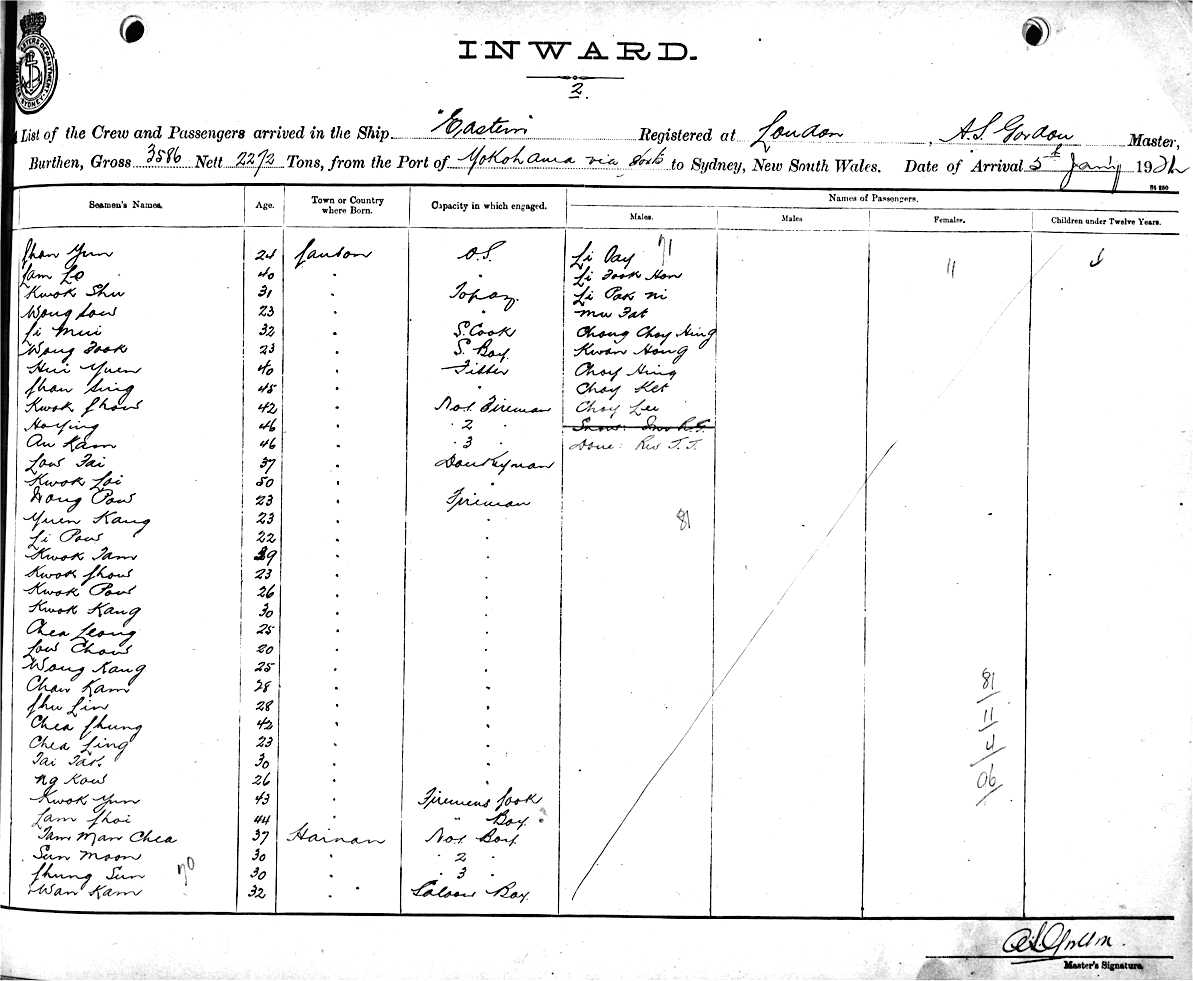 INWARD.
2.
List of the Crew and Passengers arrived in the Ship "Eastern Registered at London, A.S. Gordon Master,
Burthen, Gross 3586 Nett 2272 Tons, from the Port of Yokohama via Ports to Sydney, New South Wales. Date of Arrival 5th Jan'y 192
Seamen's Names. Age. Town or Country where Born. Capacity in which engaged. Names of Passengers.
Males. Males Females. Children under Twelve Years.
71
Chan Yun 24 Canton O.S. Li Day 11 4
Lam Lo 40 " " Li Fook Hon
Kwok Shu 31 " Topaz. Li Pak Ni
Wong Sow 23 " " Mu Fat
Li Mui 32 " S. Cook Chong Choy Hing
Wong Fook 23 " S. Boy. Kwan Hong
Hui Yuen 40 " Fitter Choy Hing
Chan Sing 45 " " Choy Ket
Kwok Chow 42 " No1. Fireman Choy Lee
Ho Ying 46 " " 2 "
Au Kam 46 " " 3 " Done: Rev T.T.
Low Tai 37 " Donkeyman
Kwok Loi 50 " "
Wong Pow 23 " Fireman
Yuen Kang 23 " " 81
Li Pow 22 " "
Kwok Tam 39 " "
Kwok Chow 23 " "
Kwok Pow 26 " "
Kwok Kang 30 " "
Chea Leong 25 " "
Low Chow 20 " "
Wong Kang 25 " "
Chan Kam 28 " " 81
Chu Lin 28 " "
Chea Chung 42 " " 11
Chea Ling 23 " " 4
Tai Tar. 30 " "
Ng Kow 26 " " 06
Kwok Yun 43 " Firemens Cook
Lam Choi 44 " " Boy.
Tam Man Chea 37 Hainan No1. Boy.
Sun Moon 30 " " 2 "
Chung Sun 70 30 " " 3 "
Wan Kam 32 " " Saloon Boy.
Master's Signature.